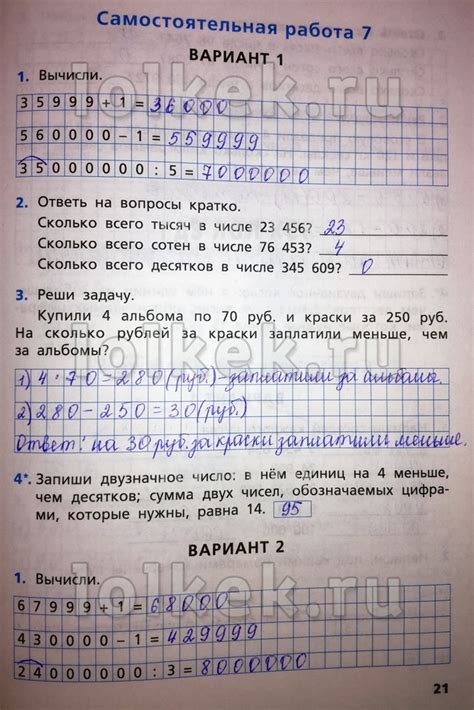 Самостоятельная работа 7
ВАРИАНТ 1
1. Вычисли.
35999+1=36000
560000-1=559999
35000000:5=7000000
2. Ответь на вопросы кратко.
Сколько всего тысяч в числе 23 456? 23
Сколько всего сотен в числе 76 453? 4
Сколько всего десятков в числе 345 609? 0
3. Реши задачу.
Купили 4 альбома по 70 руб. и краски за 250 руб.
На сколько рублей за краски заплатили меньше, чем
за альбомы?
1) 4·70=280 (руб.)-заплатили за альбомы.
2) 280-250=30 (руб.)
Ответ: на 30 руб. за краски заплатили меньше.
4*. Запиши двузначное число: в нём единиц на 4 меньше,
чем десятков; сумма двух чисел, обозначаемых цифра-
ми, которые нужны, равна 14. 95
ВАРИАНТ 2
1. Вычисли.
67999+1=68000
430000-1=429999
24000000:3=8000000
21
lolkek.ru
lolkek.ru
lolkek.ru
lolkek.ru